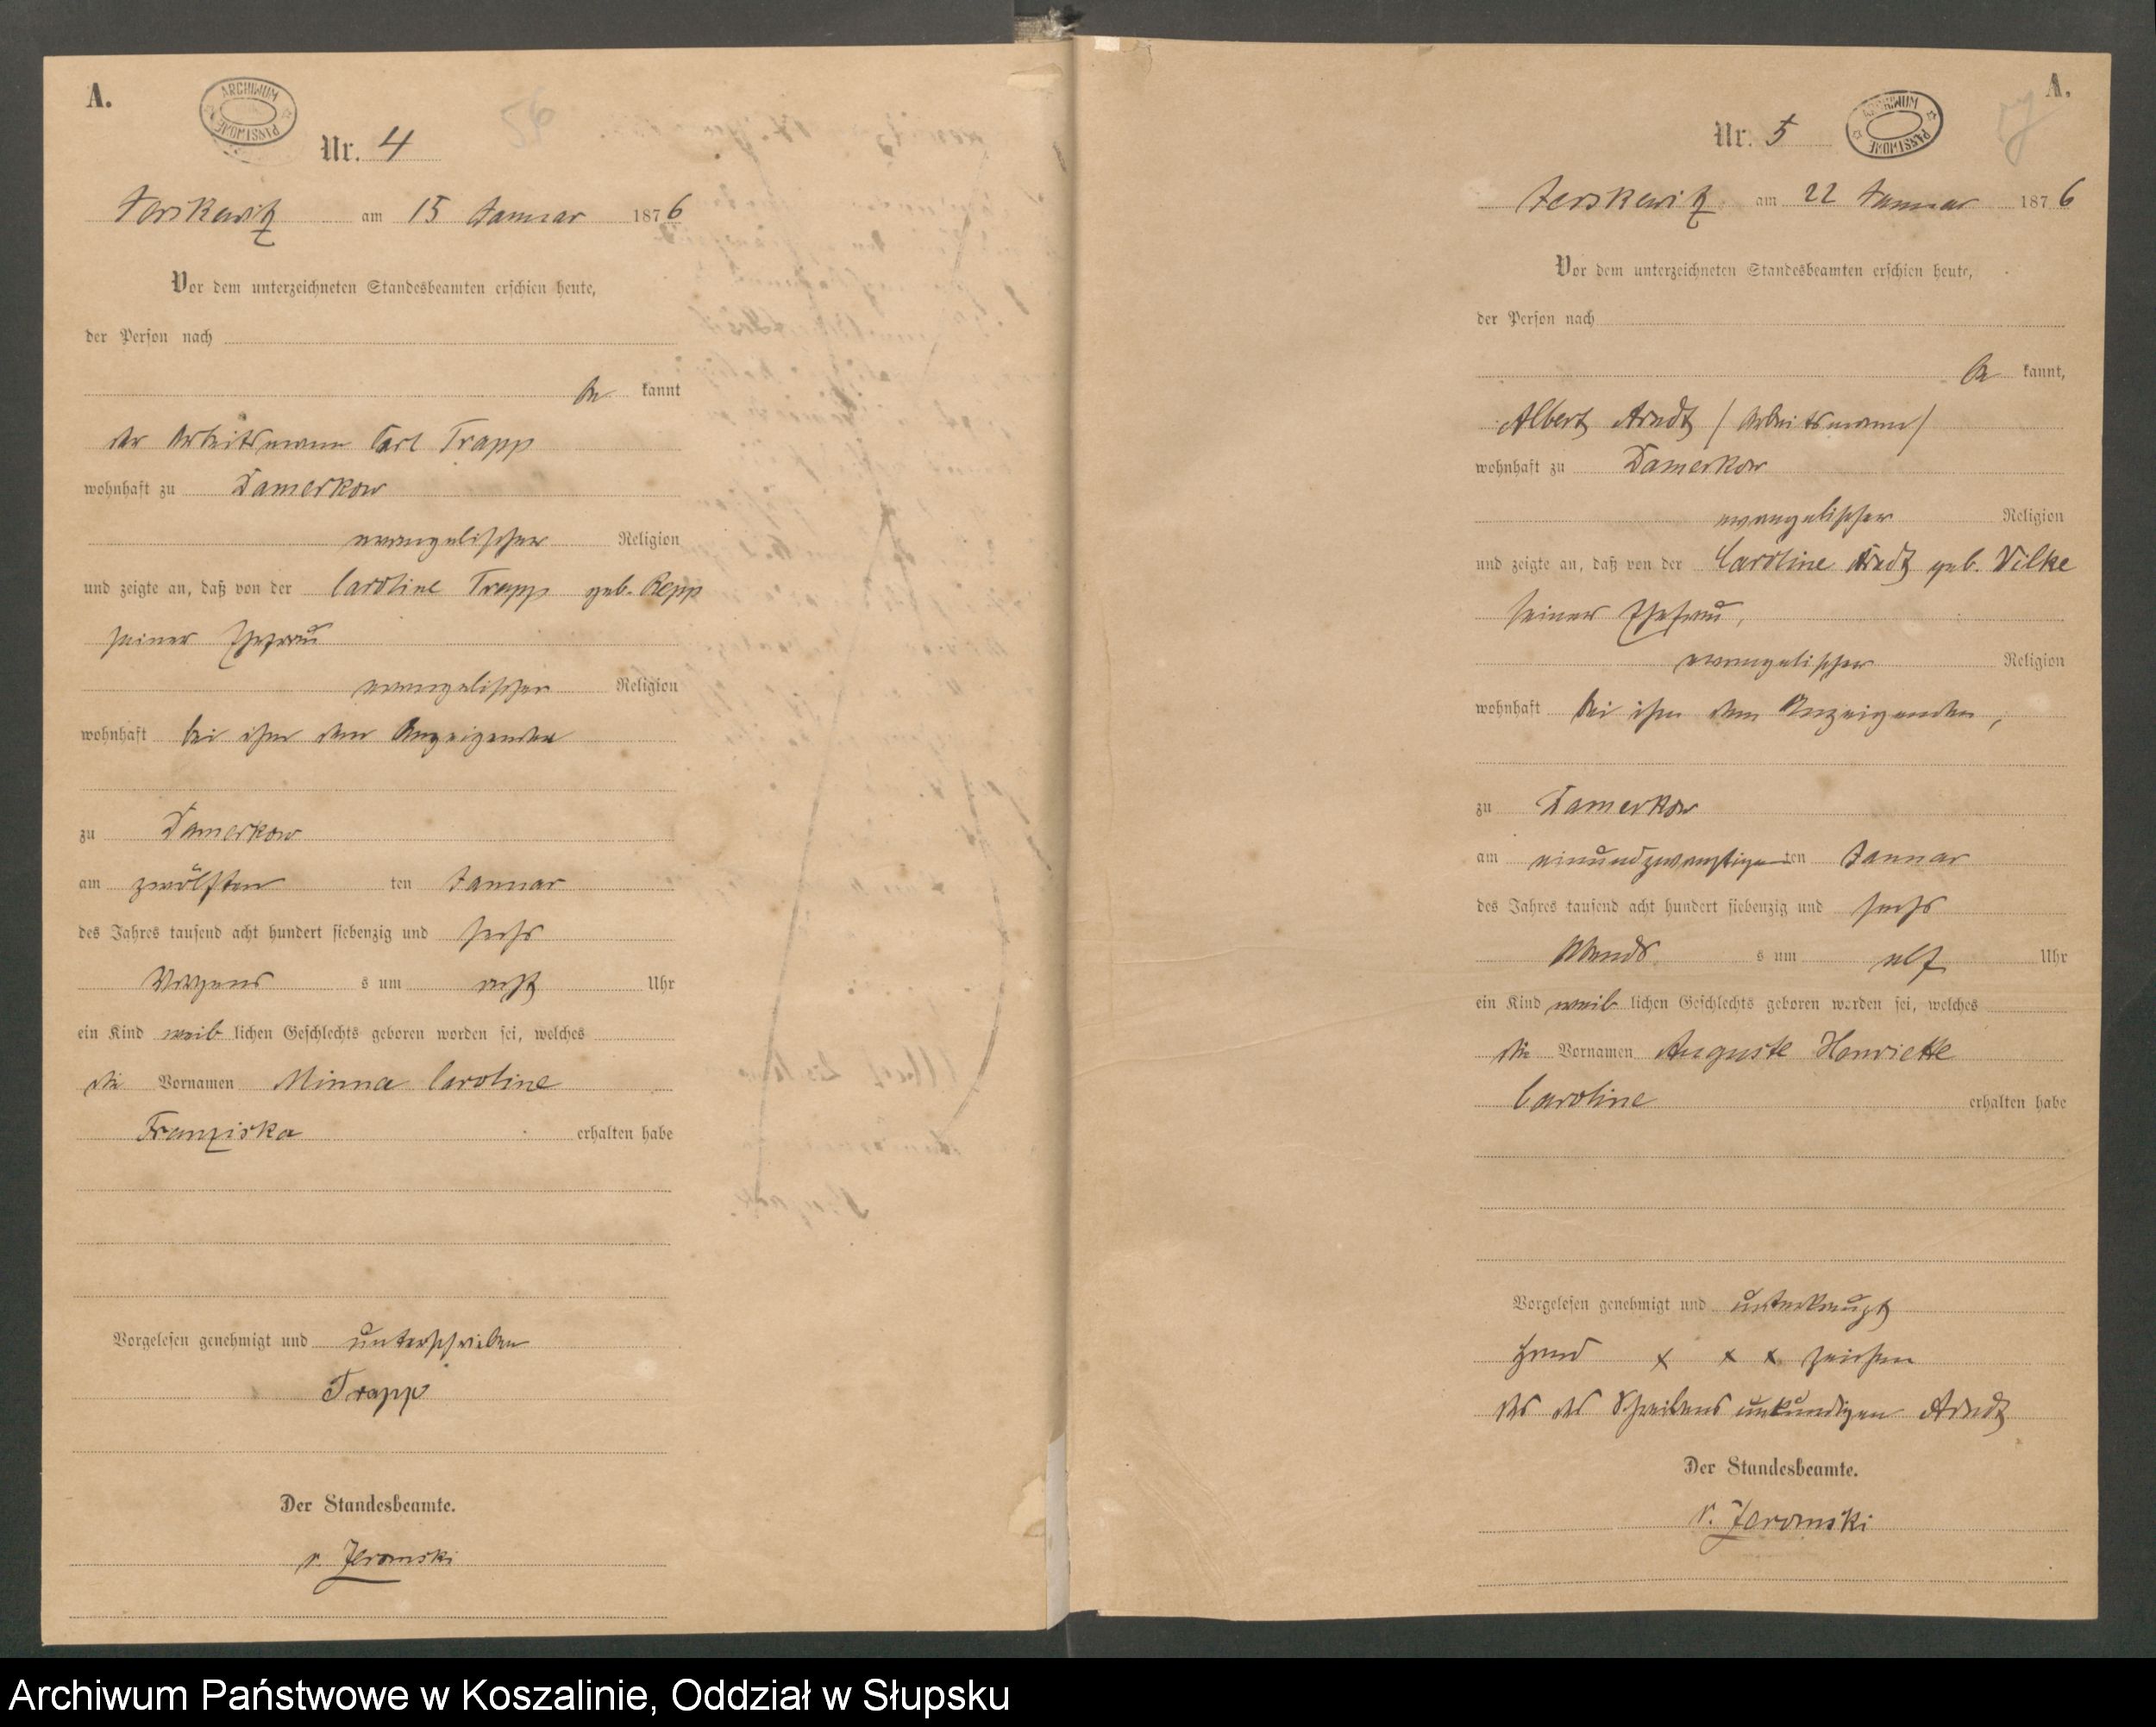 A.
ARCHIWUM PAŃSTWOWE
56
Nr. 4
Jerskewitz am 15 Januar 1876
Vor dem unterzeichneten Standesbeamten erschien heute,
der Person nach
be kannt
der Arbeitsmann Carl Trapp
wohnhaft zu Damerkow
evangelischer Religion
und zeigte an, daß von der Caroline Trapp geb. Repp
seiner Ehefrau
evangelischer Religion
wohnhaft bei ihm dem Anzeigenden
zu Damerkow
am zwölften ten Januar
des Jahres tausend acht hundert siebenzig und sechs
Morgens s um acht Uhr
ein Kind weib lichen Geschlechts geboren worden sei, welches
die Vornamen Minna Caroline
Franziska erhalten habe
Vorgelesen genehmigt und unterschrieben
Trapp
Der Standesbeamte.
v. Jeromski
A.
ARCHIWUM PAŃSTWOWE
Nr. 5
Jerskewitz am 22 Januar 1876
Vor dem unterzeichneten Standesbeamten erschien heute,
der Person nach
be kannt,
Albert Arndt / Arbeitsmann /
wohnhaft zu Damerkow
evangelischer Religion
und zeigte an, daß von der Caroline Arndt geb. Vilke
seiner Ehefrau,
evangelischer Religion
wohnhaft bei ihm dem Anzeigenden,
zu Damerkow
am einundzwanzigsten ten Januar
des Jahres tausend acht hundert siebenzig und sechs
Abends s um elf Uhr
ein Kind weib lichen Geschlechts geboren worden sei, welches
die Vornamen Auguste Henriette
Caroline erhalten habe
Vorgelesen genehmigt und unterkreuzt
Hand x x x zeichen
des des Schreibens unkundigen Arndt
Der Standesbeamte.
v. Jeromski
Archiwum Państwowe w Koszalinie, Oddział w Słupsku